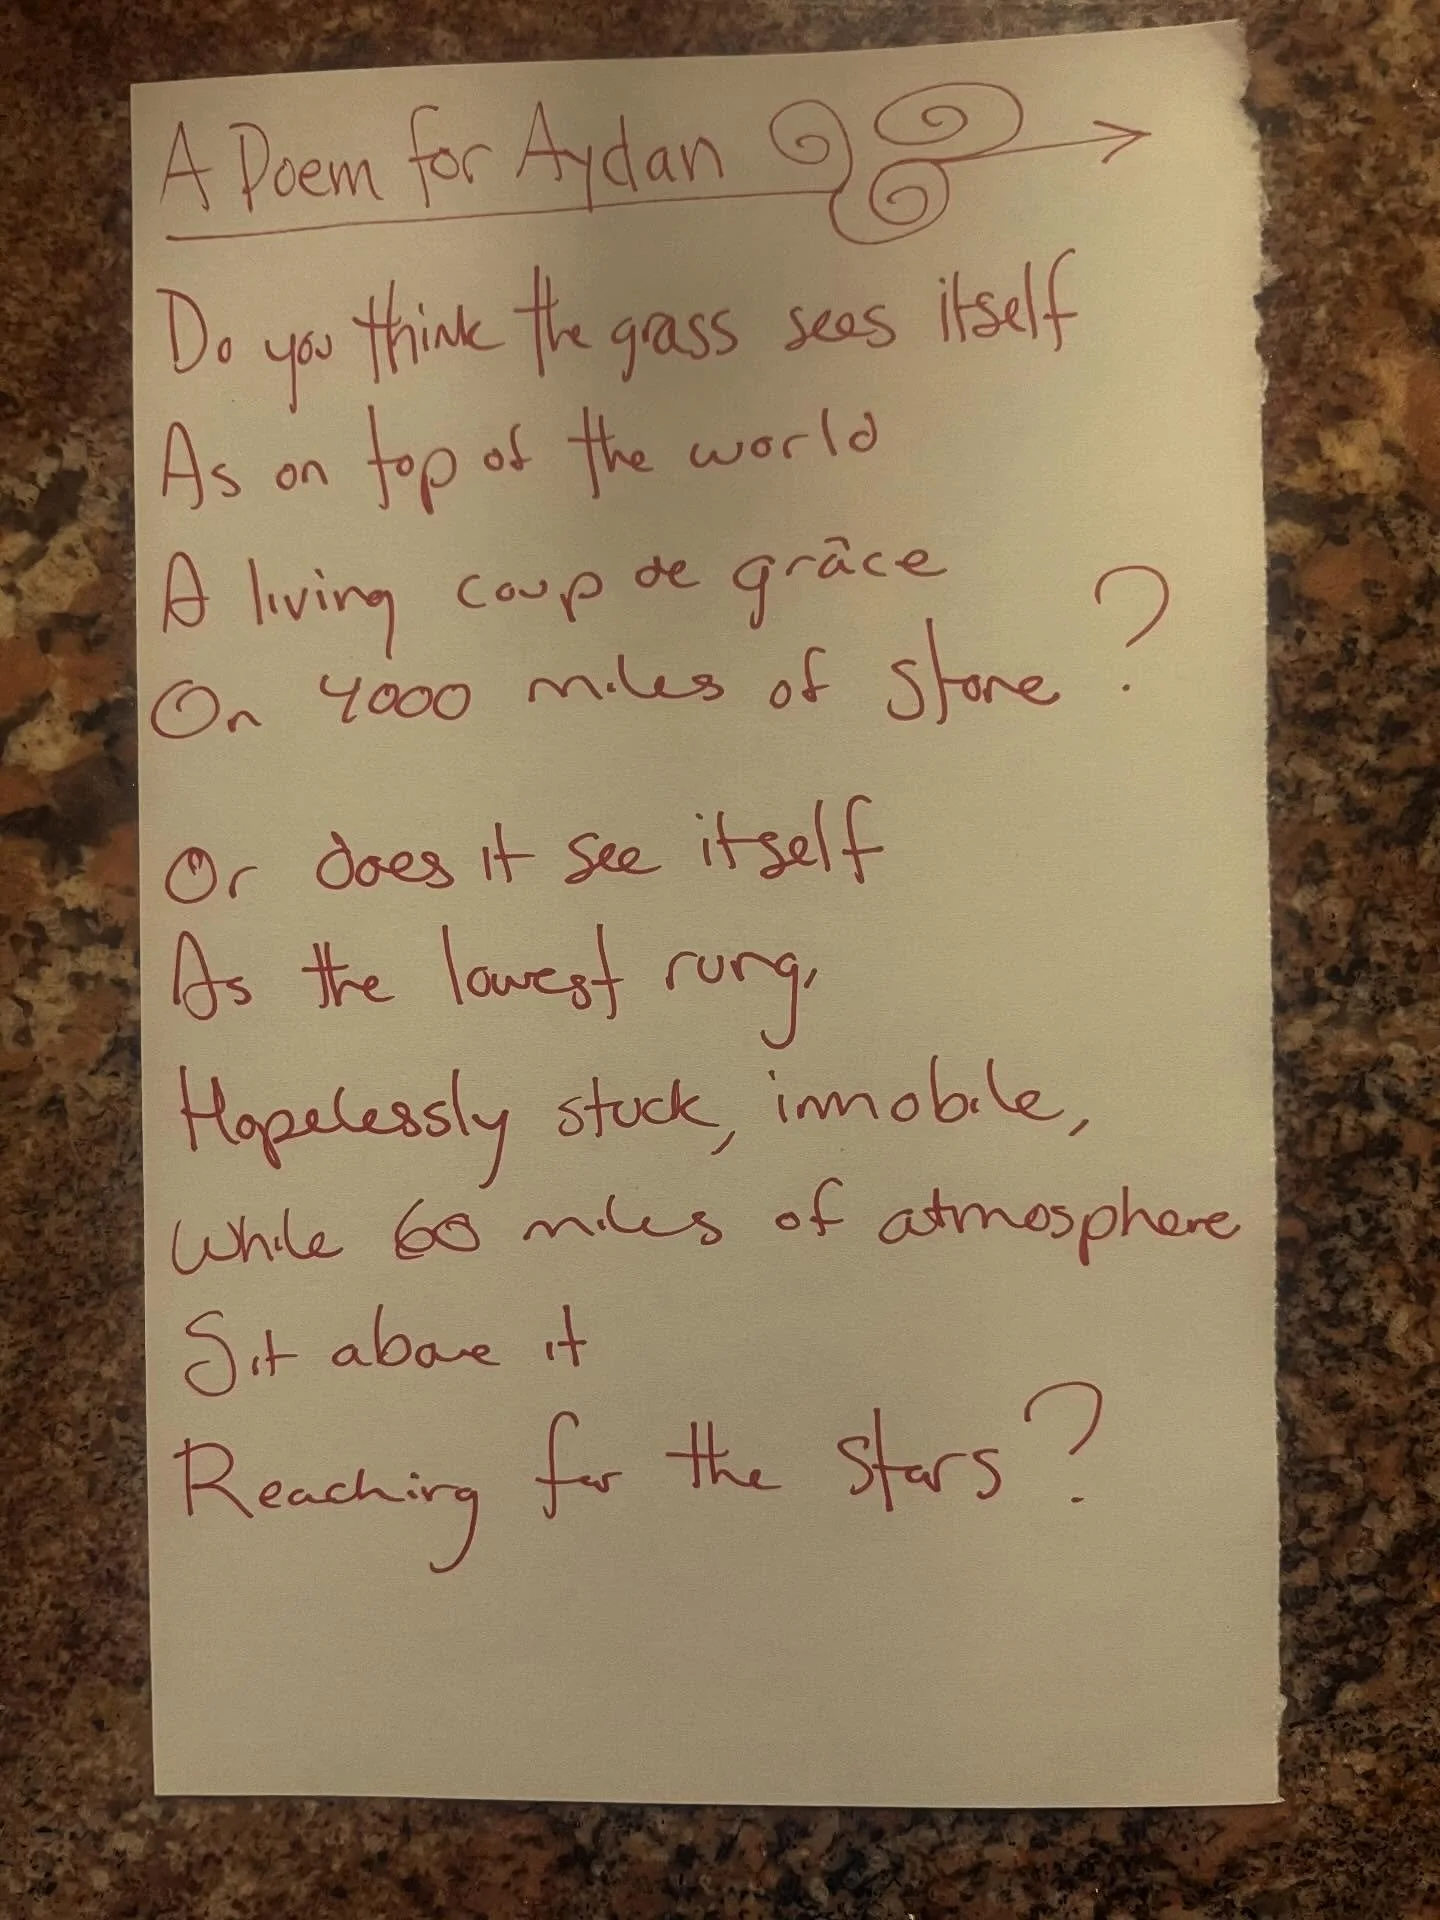 A Poem for Aydan
Do you think the grass sees itself
As on top of the world
A living coup de grâce
On 4000 miles of stone?
Or does it see itself
As the lowest rung,
Hopelessly stuck, immobile,
While 60 miles of atmosphere
Sit above it
Reaching for the stars?